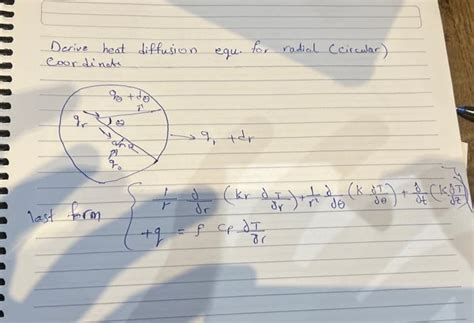 Derive heat diffusion equ. for radial (circular)
coordinate
qθ + dθ
qr θ r
→ qr + dr
qθ
last form { 1/r ∂/∂r (kr ∂T/∂r) + 1/r² ∂/∂θ (k ∂T/∂θ) + ∂/∂t (k ∂T/∂z)
+q = ρ Cp ∂T/∂r